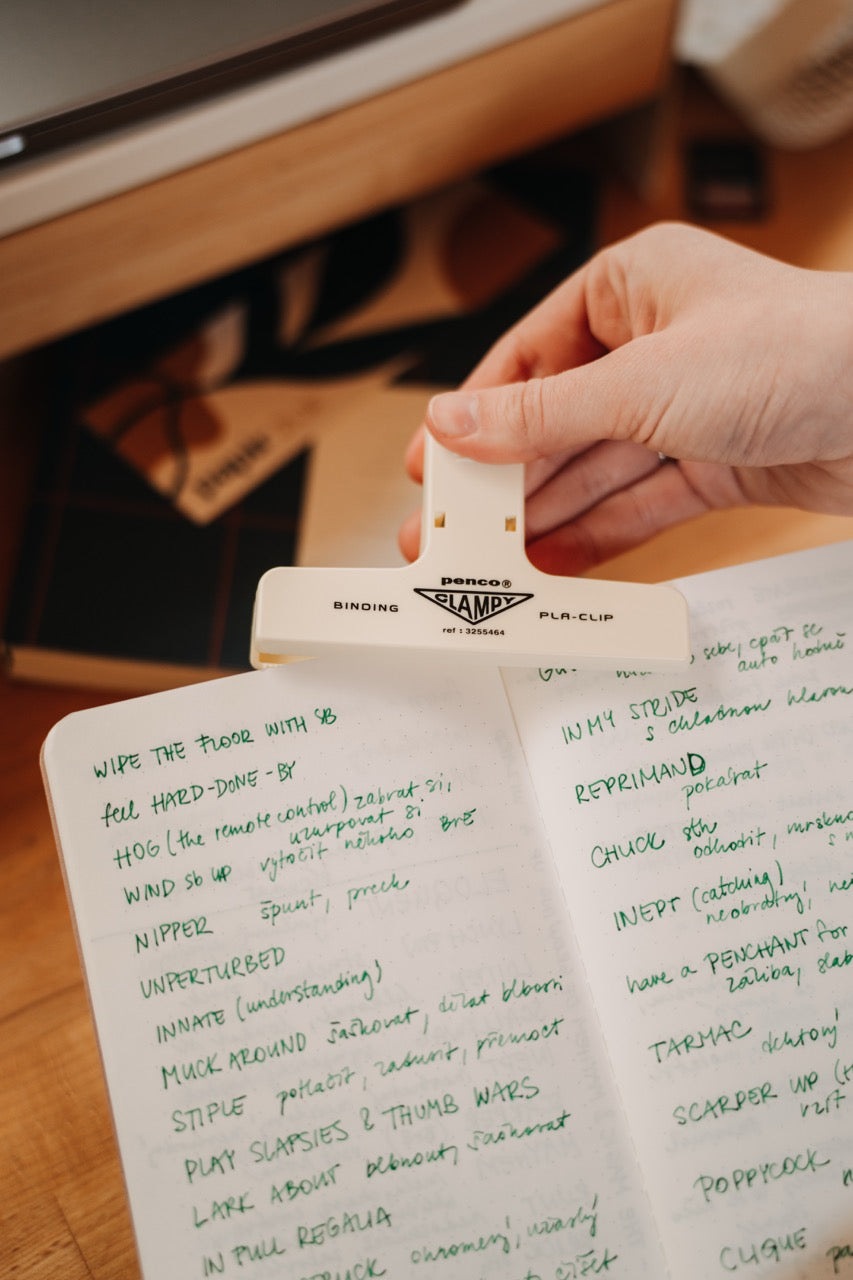 penco®
CLAMPY
BINDING
PLA-CLIP
ref : 3255464
WIPE THE FLOOR WITH SB
feel HARD-DONE-BY
HOG (the remote control) zabrat si,
uzurpovat si
WIND sb UP vytočit někoho BrE
NIPPER špunt, prcek
UNPERTURBED
INNATE (understanding)
MUCK AROUND šaškovat, dělat blbosti
STIPLE potlačit, zadusit, přemoct
PLAY SLAPSIES & THUMB WARS
LARK ABOUT blbnout, šaškovat
IN FULL REGALIA
ohromený, užaslý
sebe, cpát se
auto hodně
IN MY STRIDE
s chladnou hlavou
REPRIMAND
pokárat
CHUCK sth
odhodit,
INEPT (catching)
neobratný,
have a PENCHANT for
záliba,
TARMAC
dehtový
SCARPER UP
vzít
POPPYCOCK
CLIQUE